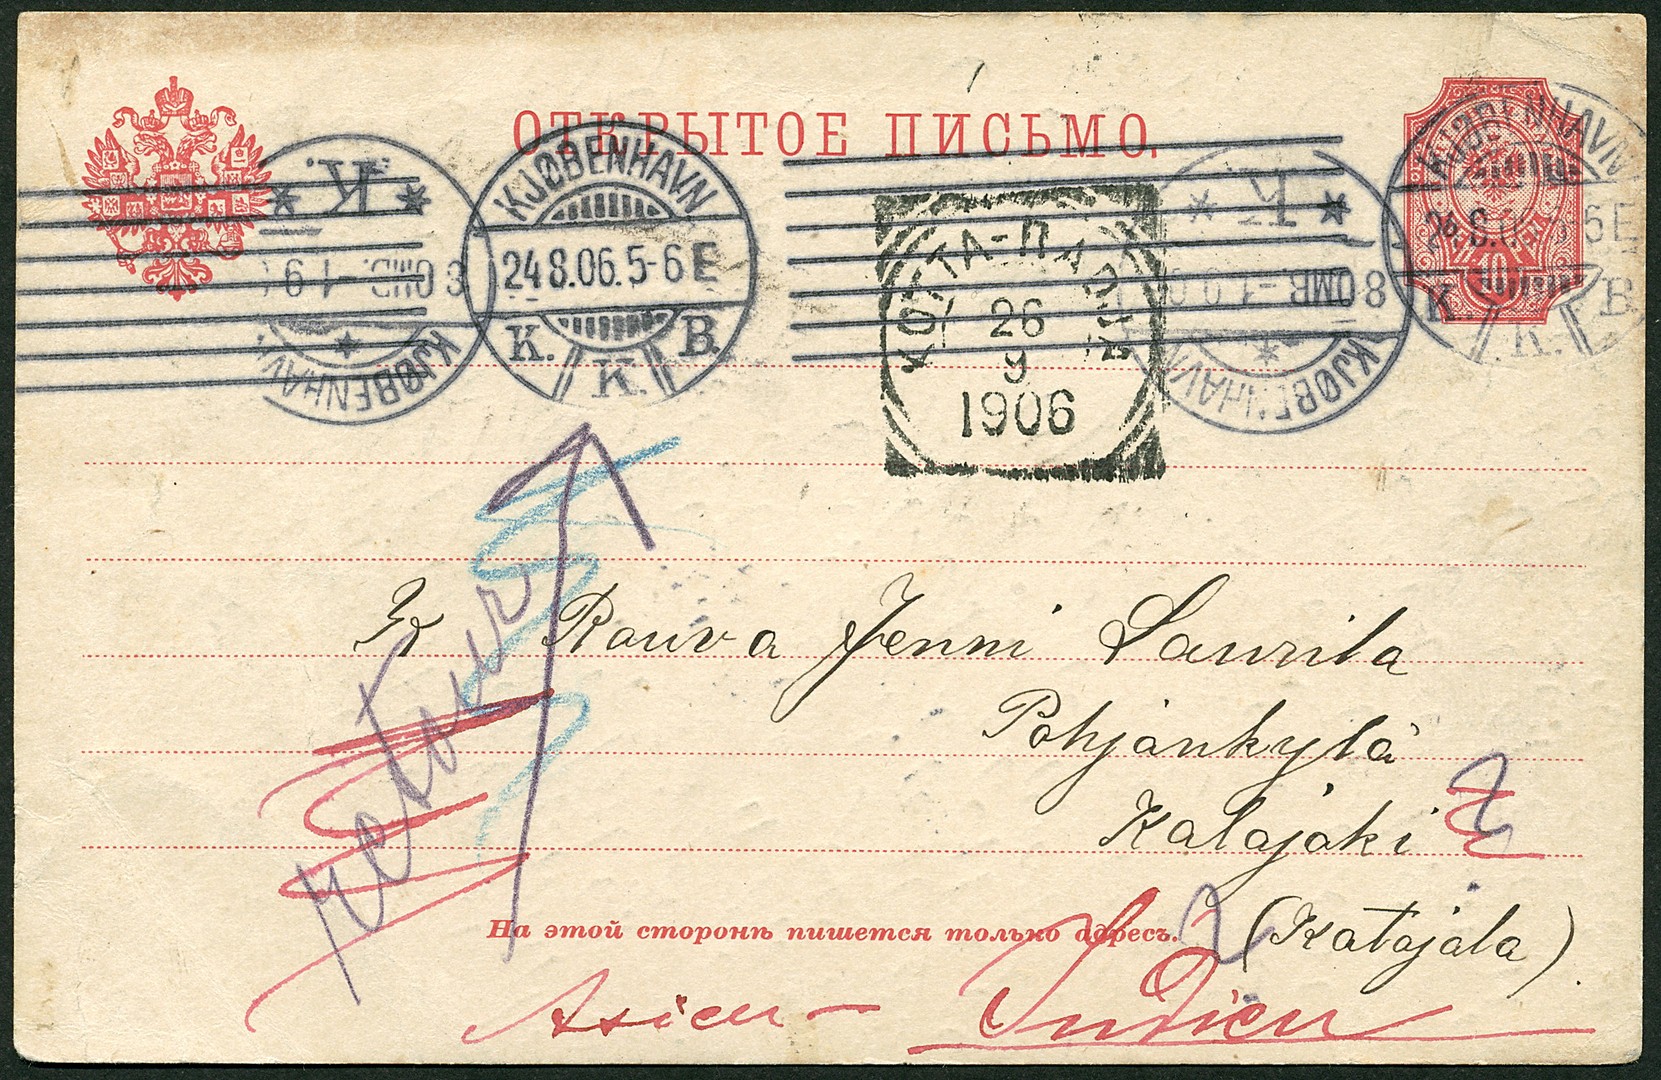 ОТКРЫТОЕ ПИСЬМО.
KJØBENHAVN
24 8.06. 5-6 E
K. K. B.
K.
8 OMB. -1.9
KJØBENHAVN
КОТТА-ПАДЖОК
26
9
1906
K.
8 OMB. -1.9.0
KJØBENHAVN
KJØBENHAVN
K. K. B.
10
retour
Rouva Jenni Laurila
Pohjankylä
Kalajoki
(Katajala)
На этой сторонѣ пишется только адресъ.
Asien - Indien